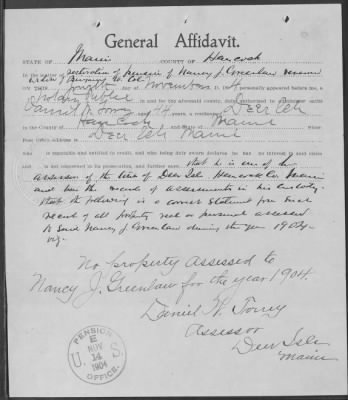 General Affidavit.
STATE OF Maine COUNTY OF Hancock
In the matter of restoration of pension of Nancy J. Greenlaw
ON THIS fourth day of November A. D. 1904 personally appeared before me, a
Notary Public in and for the aforesaid county, duly authorized to administer oaths
Daniel W. Torrey aged years, a resident of Deer Isle
in the County of Hancock and State of Maine
Post Office address is Deer Isle Maine
who is reputable and entitled to credit, and who being duly sworn declares he has no interest in said claim
and is not concerned in its prosecution, and further says: that he is one of the
assessors of the town of Deer Isle Hancock Co. Maine
and has the record of assessments in his custody
that the following is a correct statement from said
record of all property real or personal assessed
to said Nancy J. Greenlaw during the year 1904
viz.
No property assessed to
Nancy J. Greenlaw for the year 1904.
Daniel W. Torrey
Assessor
Deer Isle
Maine
U. S. PENSION OFFICE.
NOV
14
1904